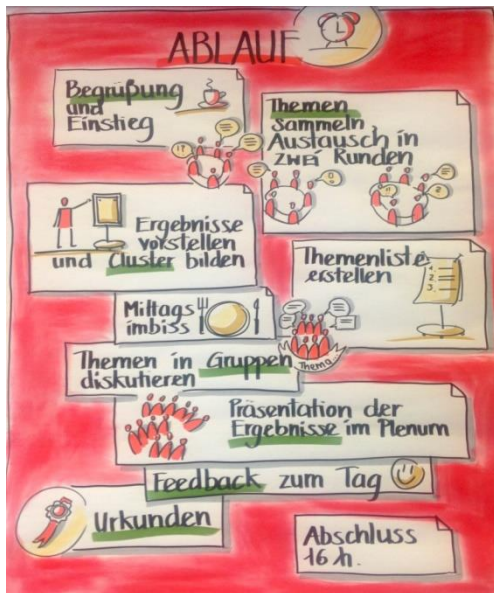 ABLAUF
Begrüßung
und
Einstieg
!?
Themen
sammeln,
Austausch in
ZWEI Runden
Ergebnisse
vorstellen
und Cluster bilden
Themenliste
erstellen
1.
2.
3.
Mittags
imbiss
Thema
Themen in Gruppen
diskutieren
Präsentation der
Ergebnisse im Plenum
Feedback zum Tag
Urkunden
Abschluss
16 h.